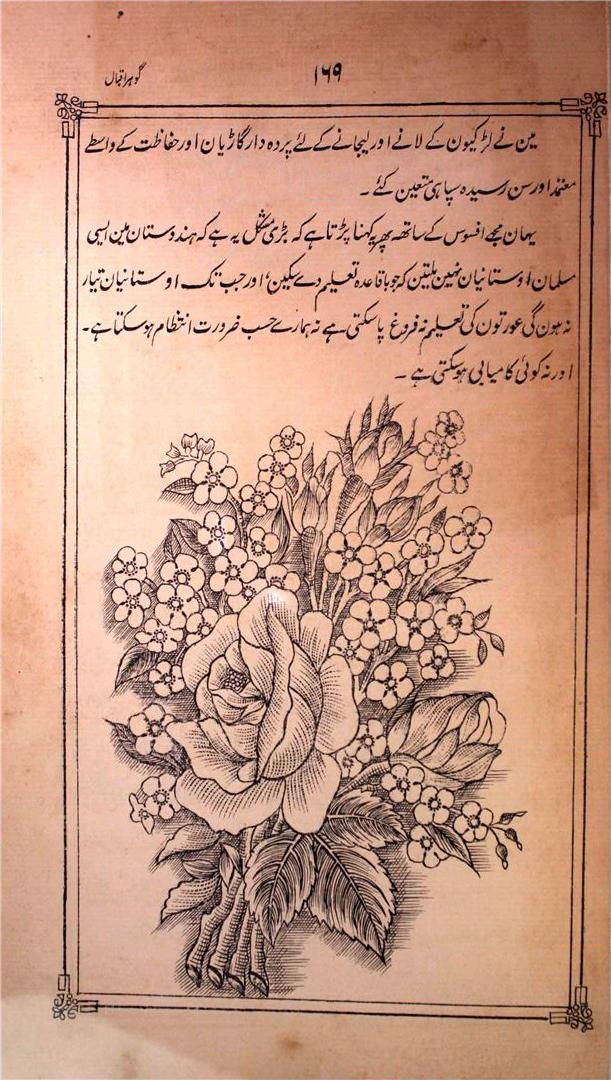 گوہر اقبال
۱۶۹
مین نے لڑکیون کے لانے اور لیجانے کے لئے پردہ دار گاڑیان اور حفاظت کے واسطے
معتمد اور سن رسیدہ سپاہی متعین کئے ۔
یہان مجھے افسوس کے ساتھ پھر یہ کہنا پڑتا ہے کہ بڑی مشکل یہ ہے کہ ہندوستان مین ایسی
مسلمان اوستانیان نہین ملتین کہ جو باقاعدہ تعلیم دے سکین، اور جب تک اوستانیان تیار
نہ ہون گی عورتون کی تعلیم نہ فروغ پا سکتی ہے نہ ہمارے حسب ضرورت انتظام ہو سکتا ہے۔
اور نہ کوئی کامیابی ہو سکتی ہے ۔